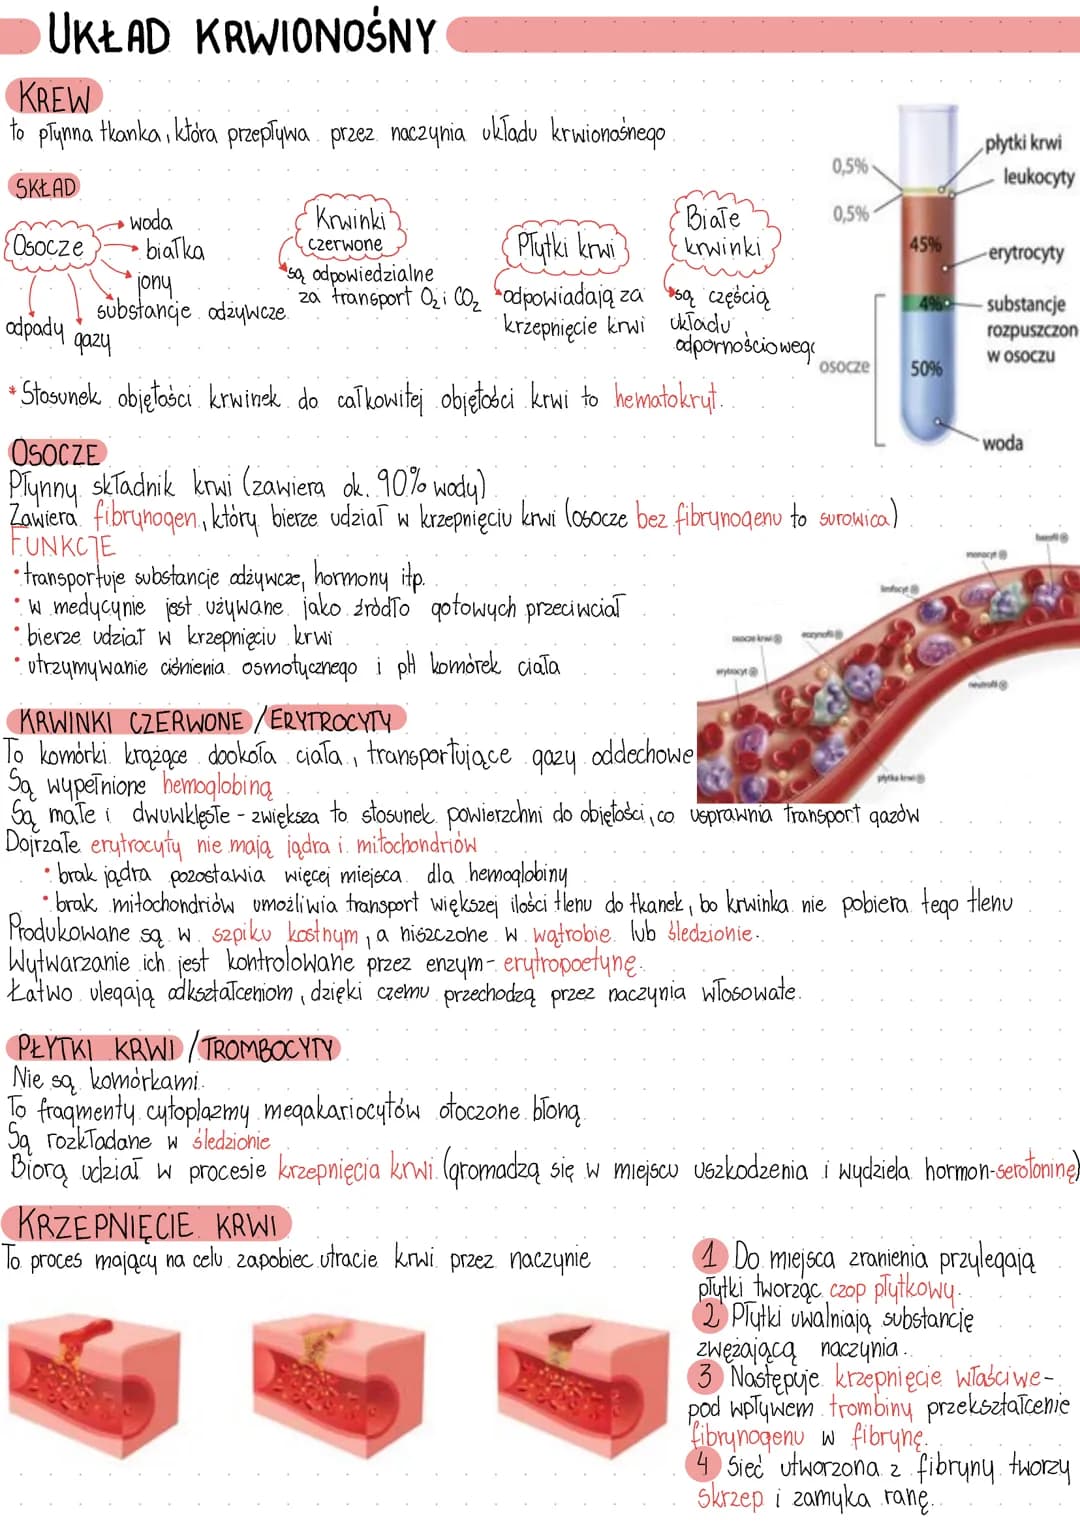 UKŁAD KRWIONOŚNY
KREW
to płynna tkanka, która przepływa przez naczynia układu krwionośnego
SKŁAD
Osocze
woda
białka
jony
substancje odżywcze
gazy
odpady
Krwinki
czerwone
są odpowiedzialne
za transport O₂ i CO₂
Płytki krwi
odpowiadają za
krzepnięcie krwi
Białe
krwinki
są częścią
układu
odpornościowego
0,5%
0,5%
45%
4%
50%
osocze
płytki krwi
leukocyty
erytrocyty
substancje
rozpuszczon
w osoczu
woda
* Stosunek objętości krwinek do całkowitej objętości krwi to hematokryt.
OSOCZE
Płynny składnik krwi (zawiera ok. 90% wody)
Zawiera fibrynogen, który bierze udział w krzepnięciu krwi (osocze bez fibrynogenu to surowica)
FUNKCJE
• transportuje substancje odżywcze, hormony itp.
• w medycynie jest używane jako źródło gotowych przeciwciał
• bierze udział w krzepnięciu krwi
• utrzymywanie ciśnienia osmotycznego i pH komórek ciała
bazofil
monocyt
limfocyt
eozynofil
osocze krwi
erytrocyt
neutrofil
płytka krwi
KRWINKI CZERWONE / ERYTROCYTY
To komórki krążące dookoła ciała, transportujące gazy oddechowe
Są wypełnione hemoglobiną
Są małe i dwuwklęsłe - zwiększa to stosunek powierzchni do objętości, co usprawnia transport gazów
Dojrzałe erytrocyty nie mają jądra i mitochondriów
• brak jądra pozostawia więcej miejsca dla hemoglobiny
• brak mitochondriów umożliwia transport większej ilości tlenu do tkanek, bo krwinka nie pobiera tego tlenu
Produkowane są w szpiku kostnym, a niszczone w wątrobie lub śledzionie.
Wytwarzanie ich jest kontrolowane przez enzym - erytropoetynę.
Łatwo ulegają odkształceniom, dzięki czemu przechodzą przez naczynia włosowate.
PŁYTKI KRWI / TROMBOCYTY
Nie są komórkami.
To fragmenty cytoplazmy megakariocytów otoczone błoną.
Są rozkładane w śledzionie
Biorą udział w procesie krzepnięcia krwi (gromadzą się w miejscu uszkodzenia i wydziela hormon-serotoninę)
KRZEPNIĘCIE KRWI
To proces mający na celu zapobiec utracie krwi przez naczynie
1 Do miejsca zranienia przylegają
płytki tworząc czop płytkowy.
2 Płytki uwalniają substancję
zwężającą naczynia.
3 Następuje krzepnięcie właściwe-
pod wpływem trombiny przekształcenie
fibrynogenu w fibrynę.
4 Sieć utworzona z fibryny tworzy
skrzep i zamyka ranę.